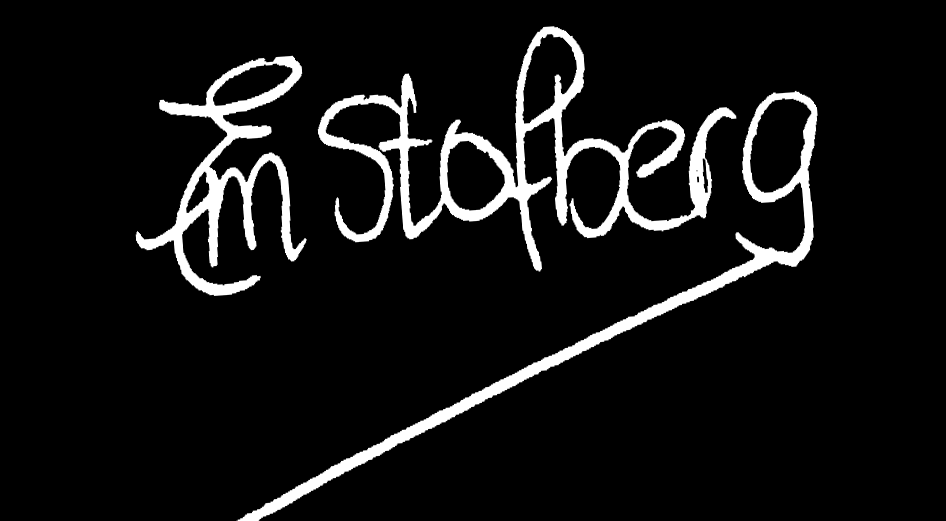 Em Stolberg